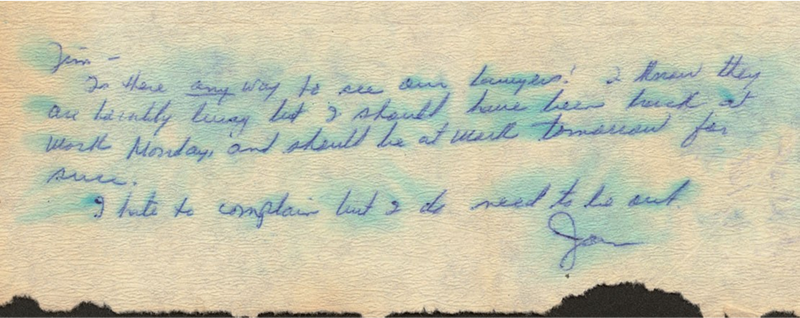 Jim -
Is there any way to see our lawyers? I know they
are horribly busy but I should have been back at
work Monday, and should be at work tomorrow for
sure.
I hate to complain but I do need to be out.